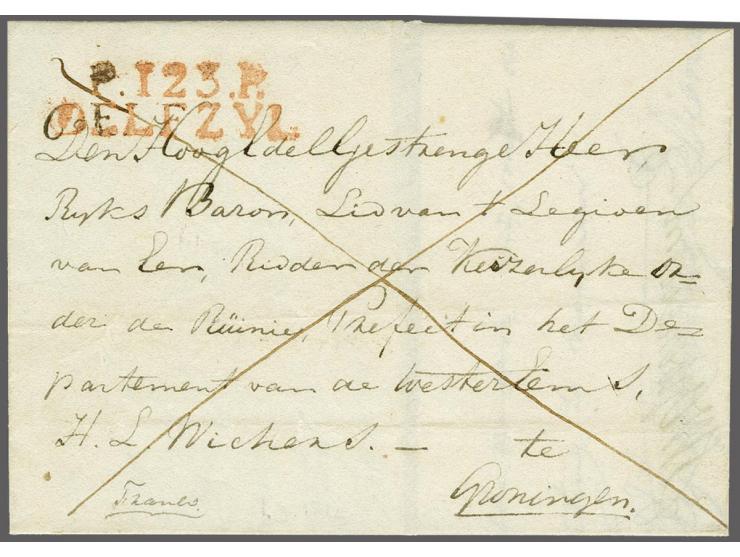 P.123.P.
DELFZYL.
Den Hoog Edell Gestrenge Heer,
Ryks Baron, Lid van t Legioen
van Eer, Ridder der Keizerlyke or=
der de Rüinie, Prefect in het De=
partement van de Wester Eems,
H. L. Wichers. — te
Groningen.
Franco.